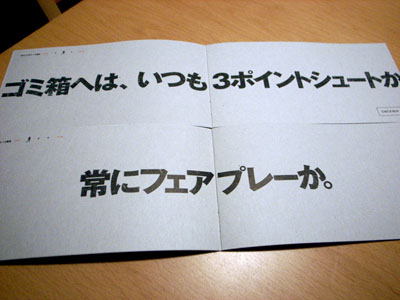 ゴミ箱へは、いつも3ポイントシュートか
常にフェアプレーか。